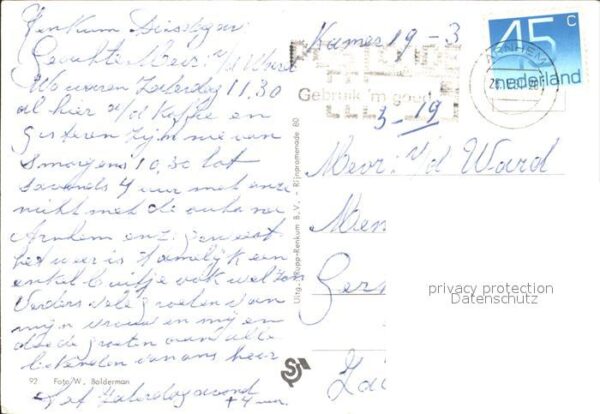 Renkum Dinsdag
Geachte Mevr: v/d Ward
Wo waren Zaterdag 11.30
al hier a/d koffie en
Gisteren zijn we van
Smorgens 10,30 tot
savonds 4 uur met onze
nicht met de auto na
Arnhem enz: geweest
het weer is tamelijk een
enkel buitje ook wel zon
Verders vele groeten van
mijn vrouw en mij en
de groeten aan alle
bekenden van ons heer
Zaterdagavond
± 4 uur.
92 Foto/W. Bolderman
Uitg. Rupp-Renkum B.V. - Rijnpromenade 80
Kamer 19 - 3
Gebruik 'm goed
3 - 19
45 c
nederland
ARNHEM
Mevr: v/d Ward
Men
Ger
Za
privacy protection
Datenschutz